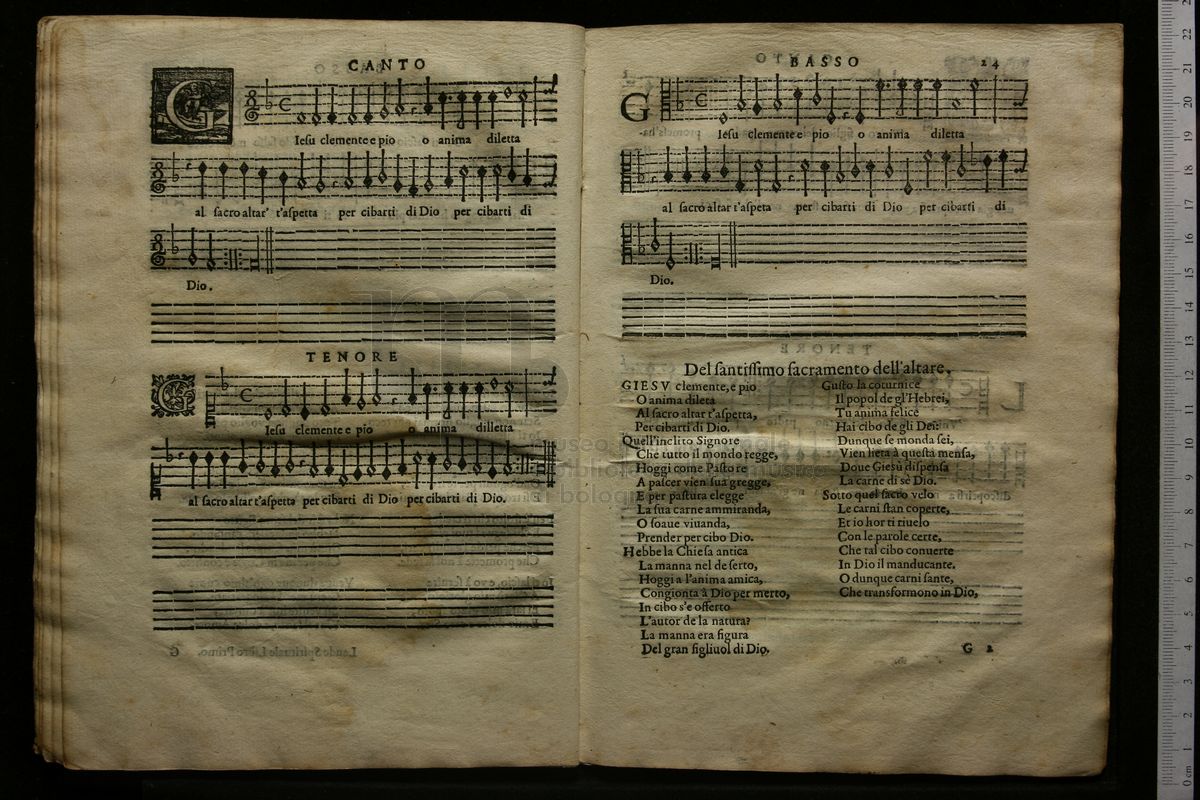 CANTO
G
Iesu clemente e pio o anima diletta
al sacro altar' t'aspetta per cibarti di Dio per cibarti di
Dio.
TENORE
G
Iesu clemente e pio o anima dilletta
al sacro altar t'aspetta per cibarti di Dio per cibarti di Dio.
BASSO 24
G
Iesu clemente e pio o anima diletta
al sacro altar t'aspeta per cibarti di Dio per cibarti di
Dio.
Del santissimo sacramento dell'altare.
GIESV clemente, e pio
O anima dileta
Al sacro altar t'aspetta,
Per cibarti di Dio.
Quell'inclito Signore
Che tutto il mondo regge,
Hoggi come Pastore
A pascer vien sua gregge,
E per pastura elegge
La sua carne ammiranda,
O soaue viuanda,
Prender per cibo Dio.
Hebbe la Chiesa antica
La manna nel deserto,
Hoggi a l'anima amica,
Congionta à Dio per merto,
In cibo s'e offerto
L'autor de la natura?
La manna era figura
Del gran figliuol di Dio.
Gusto la coturnice
Il popol de gl'Hebrei,
Tu anima felice
Hai cibo de gli Dei:
Dunque se monda sei,
Vien lieta à questa mensa,
Doue Giesù dispensa
La carne di sè Dio.
Sotto quel sacro velo
Le carni stan coperte,
Et io hor ti riuelo
Con le parole certe,
Che tal cibo conuerte
In Dio il manducante.
O dunque carni sante,
Che transformono in Dio,
G 2